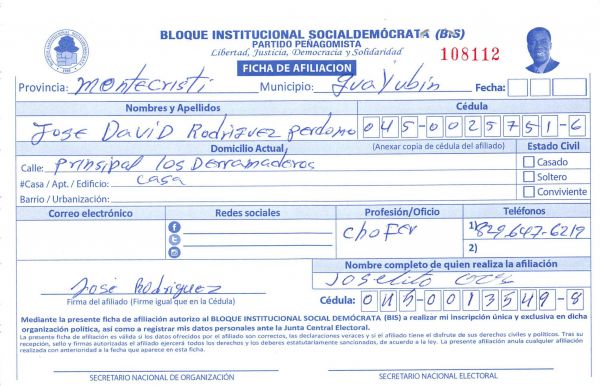 BLOQUE INSTITUCIONAL SOCIALDEMÓCRATA (BIS)
PARTIDO PEÑAGOMISTA
Libertad, Justicia, Democracia y Solidaridad
108112
FICHA DE AFILIACION
Provincia: Montecristi Municipio: GuaYubin Fecha:
Nombres y Apellidos Cédula
Jose David Rodriguez perdomo 045-0025751-6
Domicilio Actual (Anexar copia de cédula del afiliado) Estado Civil
Calle: prinsipal los Derramaderos Casado
#Casa / Apt. / Edificio: casa Soltero
Barrio / Urbanización: Conviviente
Correo electrónico Redes sociales Profesión/Oficio Teléfonos
choFer 1) 829.647-6219
2)
Nombre completo de quien realiza la afiliación
José Rodriguez Joselito
Firma del afiliado (Firme igual que en la Cédula) Cédula: 045-0013549-8
Mediante la presente ficha de afiliación autorizo al BLOQUE INSTITUCIONAL SOCIAL DEMÓCRATA (BIS) a realizar mi inscripción única y exclusiva en dicha
organización política, así como a registrar mis datos personales ante la Junta Central Electoral.
La presente ficha de afiliación es válida si los datos ofrecidos por el afiliado son correctos, las declaraciones veraces y si el afiliado tiene el disfrute de sus derechos civiles y políticos. Tras su
recepción, sello y firmas autorizadas el afiliado ejercerá todos los derechos y los deberes estatutariamente sancionados, de acuerdo a la ley. La presente afiliación anula cualquier afiliación
realizada con anterioridad a la fecha que aparece en esta ficha.
SECRETARIO NACIONAL DE ORGANIZACIÓN SECRETARIO NACIONAL ELECTORAL